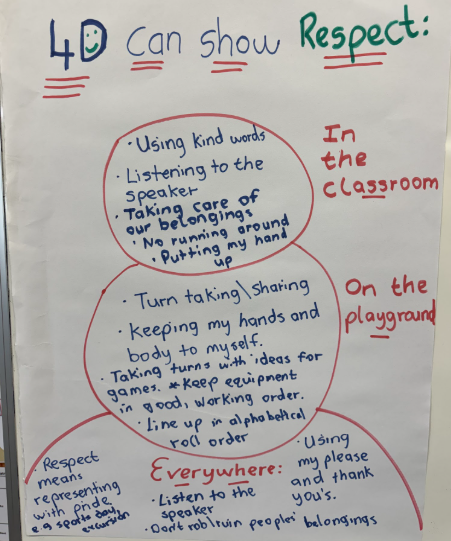 4D can show Respect:
In the classroom
• Using kind words
• Listening to the
speaker
• Taking care of
our belongings
• No running around
• Putting my hand
up
On the
playground
• Turn taking\sharing
• Keeping my hands and
body to myself.
• Taking turns with ideas for
games. * Keep equipment
in good, working order.
• Line up in alphabetical
roll order
Everywhere:
• Respect
means
representing
with pride
e.g sports day,
excursion
• Listen to the
speaker
• Using
my please
and thank
you's.
• Don't rob\ruin peoples' belongings